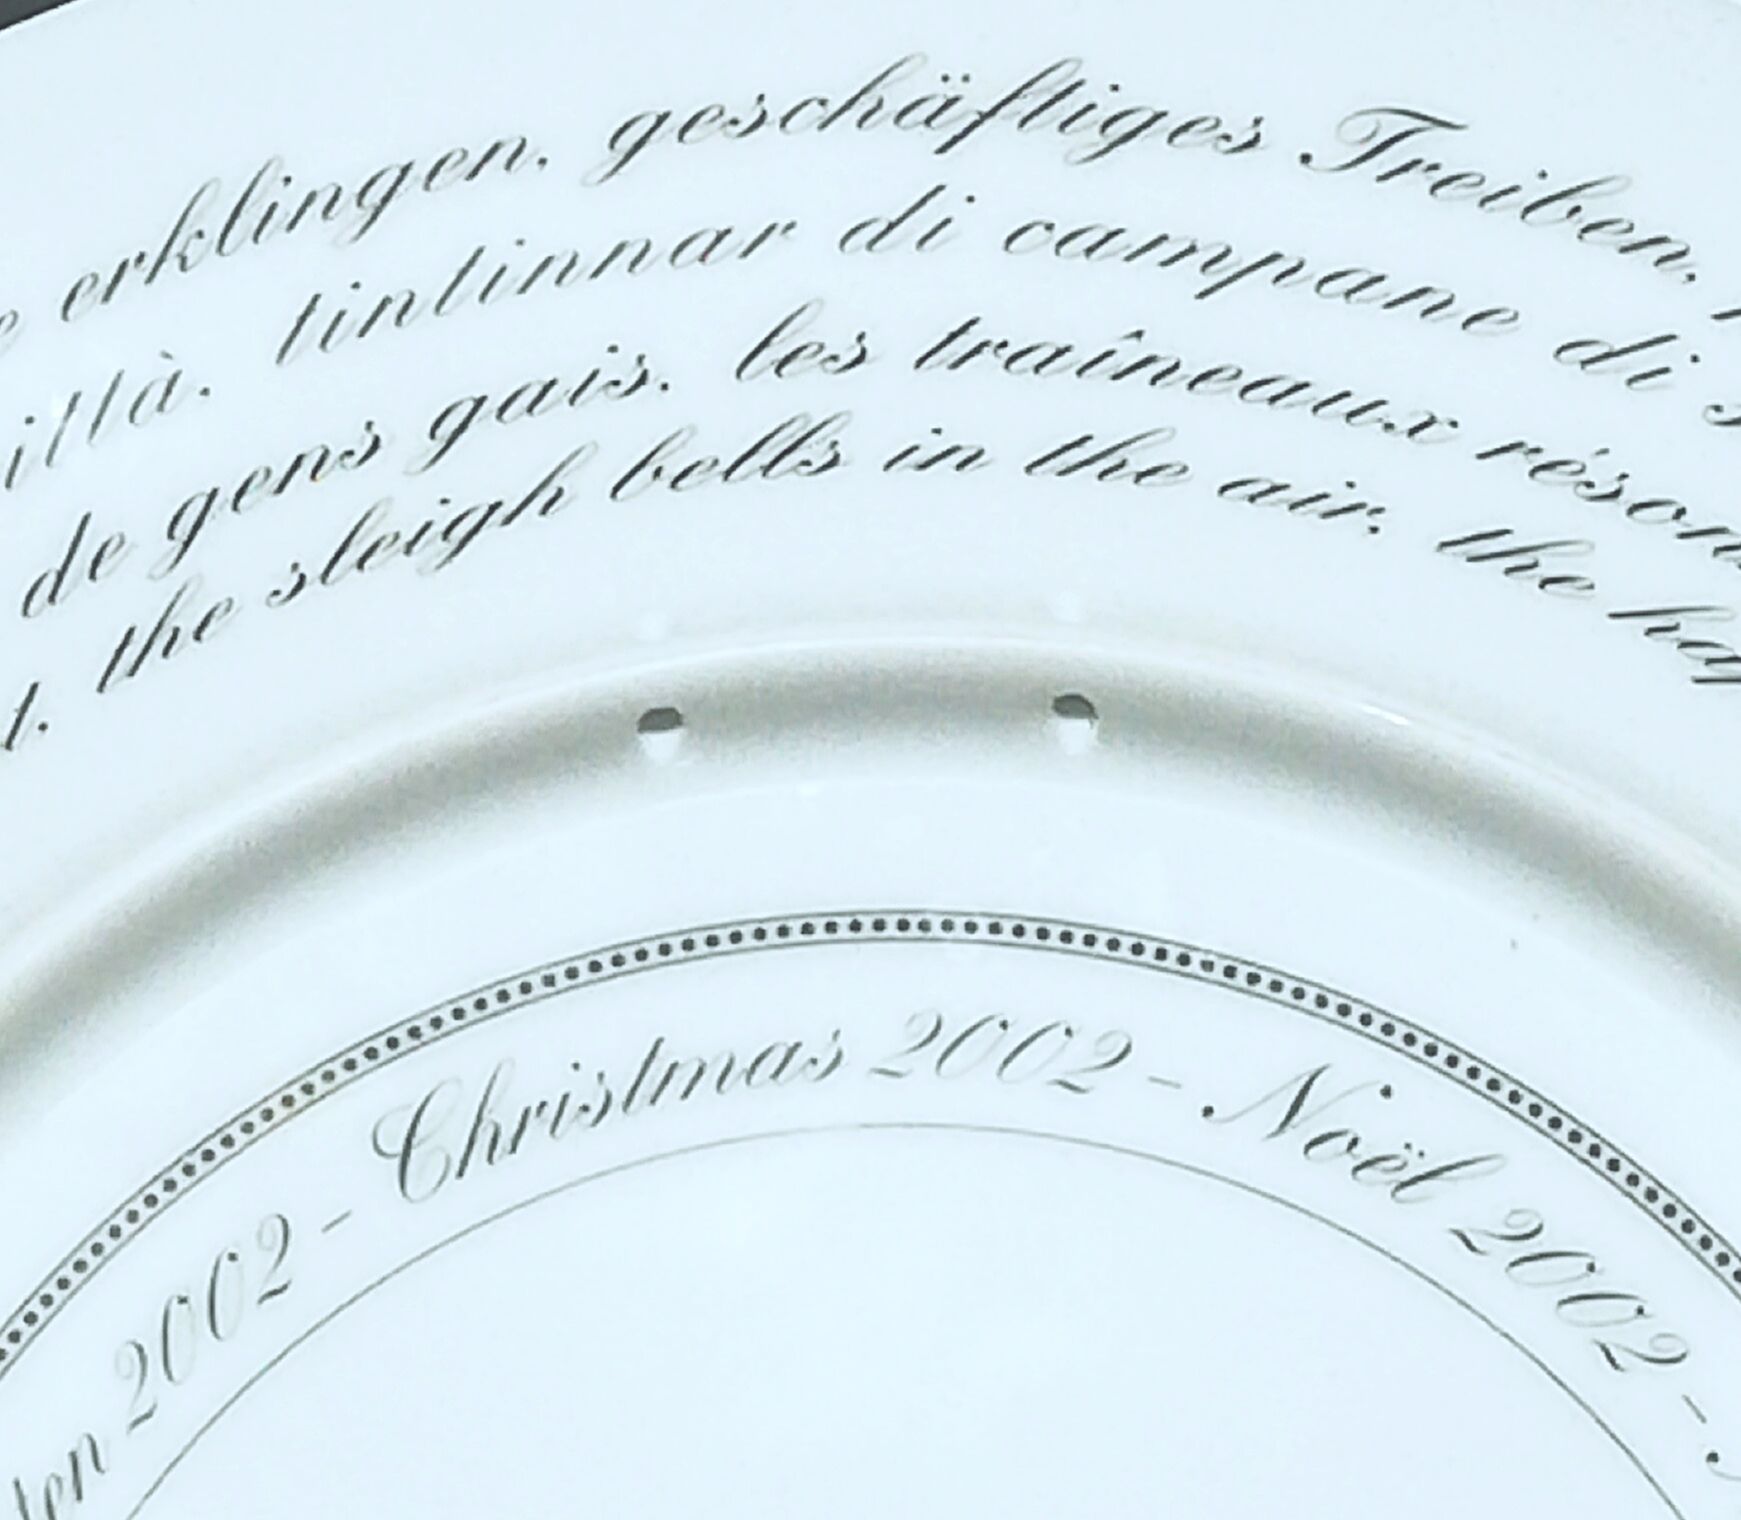 erklingen, geschäftiges Treiben,
tintinnar di campane di
de gens gais, les traîneaux
the sleigh bells in the air, the
2002 - Christmas 2002 - Noël 2002 -